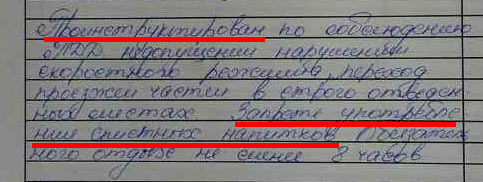 Проинструктирован по соблюдению
ПДД недопущении нарушении
скоростного режима, переход
проезжей части в строго отведен-
ных местах Запрете употребле-
нии спиртных напитков Обязатель
ного отдыха не менее 8 часов